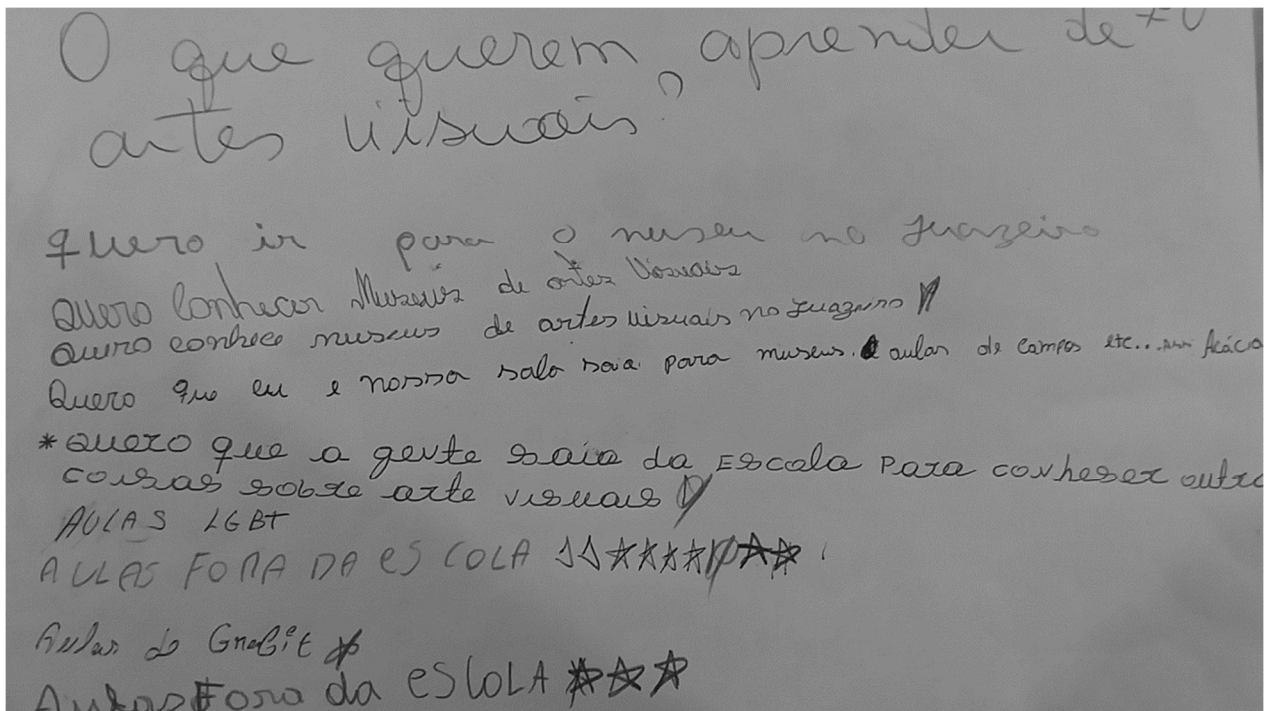 O que querem aprender de
artes visuais?
quero ir para o museu no Juazeiro
Quero conhecer Museus de artes Visuais
Quero conhece museus de artes visuais no Juazeiro
Quero que eu e nossa sala saia para museus. aulas de campos etc... Ass Acácio
* quero que a gente saia da Escola Para conheser outra
coisas sobre arte visuais
AULAS LGBT
AULAS FORA DA eSCOLA
Aulas de Grafit
Aulas Fora da eSCOLA